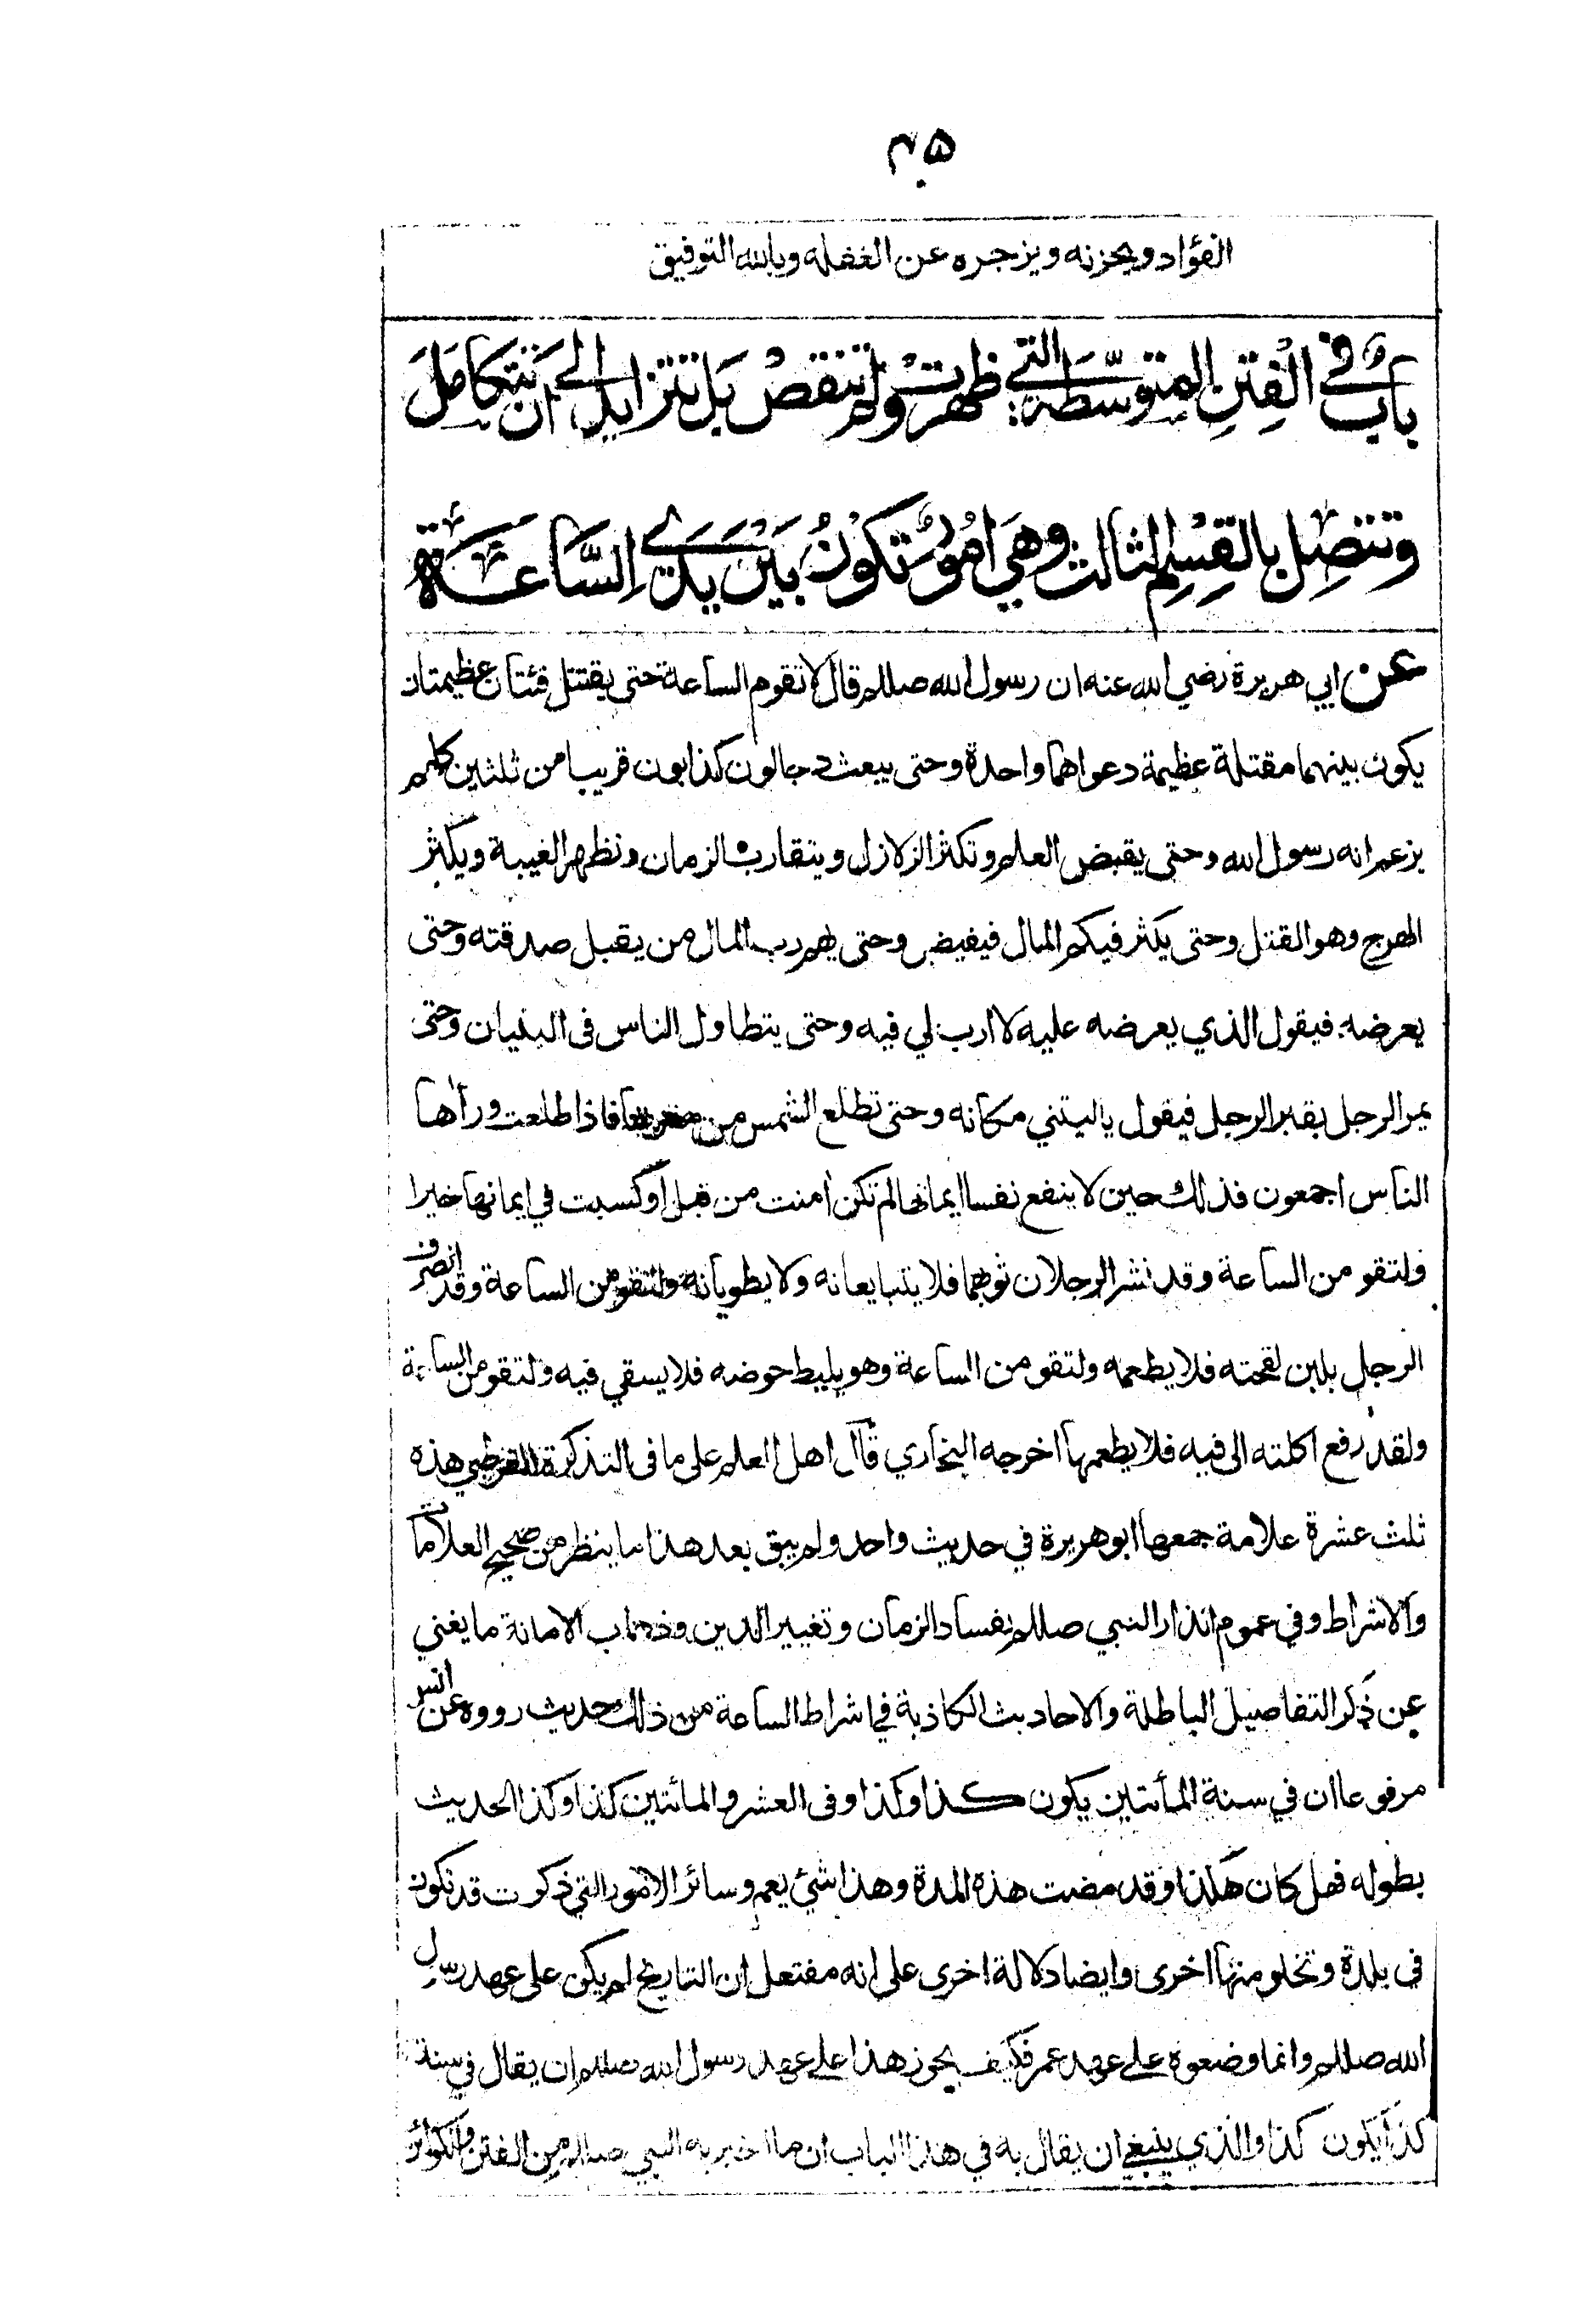 ٤٥
الفؤاد ويحزنه ويزجره عن الغفلة وبالله التوفيق
بابٌ في الفِتَنِ المتوسّطة التي ظهرت ولم تنقص بل تتزايد الى ان تتكامل
وتتصل بالقسم الثالث وهي امورٌ تكون بين يدي الساعة
عن ابي هريرة رضي الله عنه ان رسول الله صللم قال لا تقوم الساعة حتى يقتتل فئتان عظيمتان
يكون بينهما مقتلة عظيمة دعواهما واحدة وحتى يبعث دجالون كذابون قريبا من ثلثين كلهم
يزعم انه رسول الله وحتى يقبض العلم وتكثر الزلازل ويتقارب الزمان وتظهر الغيبة ويكثر
الهرج وهو القتل وحتى يكثر فيكم المال فيفيض وحتى يهم رب المال من يقبل صدقته وحتى
يعرضه فيقول الذي يعرضه عليه لا ارب لي فيه وحتى يتطاول الناس فى البنيان وحتى
يمر الرجل بقبر الرجل فيقول ياليتني مكانه وحتى تطلع الشمس من مغربها فاذا طلعت ورأها
الناس اجمعون فذلك حين لا ينفع نفسا ايمانها لم تكن أمنت من قبل او كسبت في ايمانها خيرا
ولتقومن الساعة وقد نشر الرجلان ثوبهما فلا يتبايعانه ولا يطويانه ولتقومن الساعة وقد انصرف
الرجل بلبن لقحته فلا يطعمه ولتقومن الساعة وهو يليط حوضه فلا يسقي فيه ولتقومن الساعة
ولقد رفع اكلته الى فيه فلا يطعمها اخرجه البخاري قال اهل العلم على ما فى التذكرة للقرطبي هذه
ثلث عشرة علامة جمعها ابو هريرة في حديث واحد ولم يبق بعد هذا ما ينظر من صحيح العلامات
والاشراط وفي عموم انذار النبي صللم بفساد الزمان وتغيير الدين وذهاب الامانة ما يغني
عن ذكر التفاصيل الباطلة والاحاديث الكاذبة في اشراط الساعة من ذلك حديث رووه عن انس
مرفوعا ان في سنة المأتين يكون كذا وكذا وفى العشر والمائتين كذا وكذا الحديث
بطوله فهل كان هكذا وقد مضت هذه المدة وهذا شئ يعم وسائر الامور التي ذكرت قد تكون
في بلدة وتخلو منها اخرى وايضا دلالة اخرى على انه مفتعل ان التاريخ لم يكن على عهد رسول
الله صللم وانما وضعوه على عهد عمر فكيف يجوز هذا على عهد رسول الله صللم ان يقال في سنة
كذا يكون كذا والذي ينبغي ان يقال به في هذا الباب ان ما اخبر به النبي صللم من الفتن والكوائن